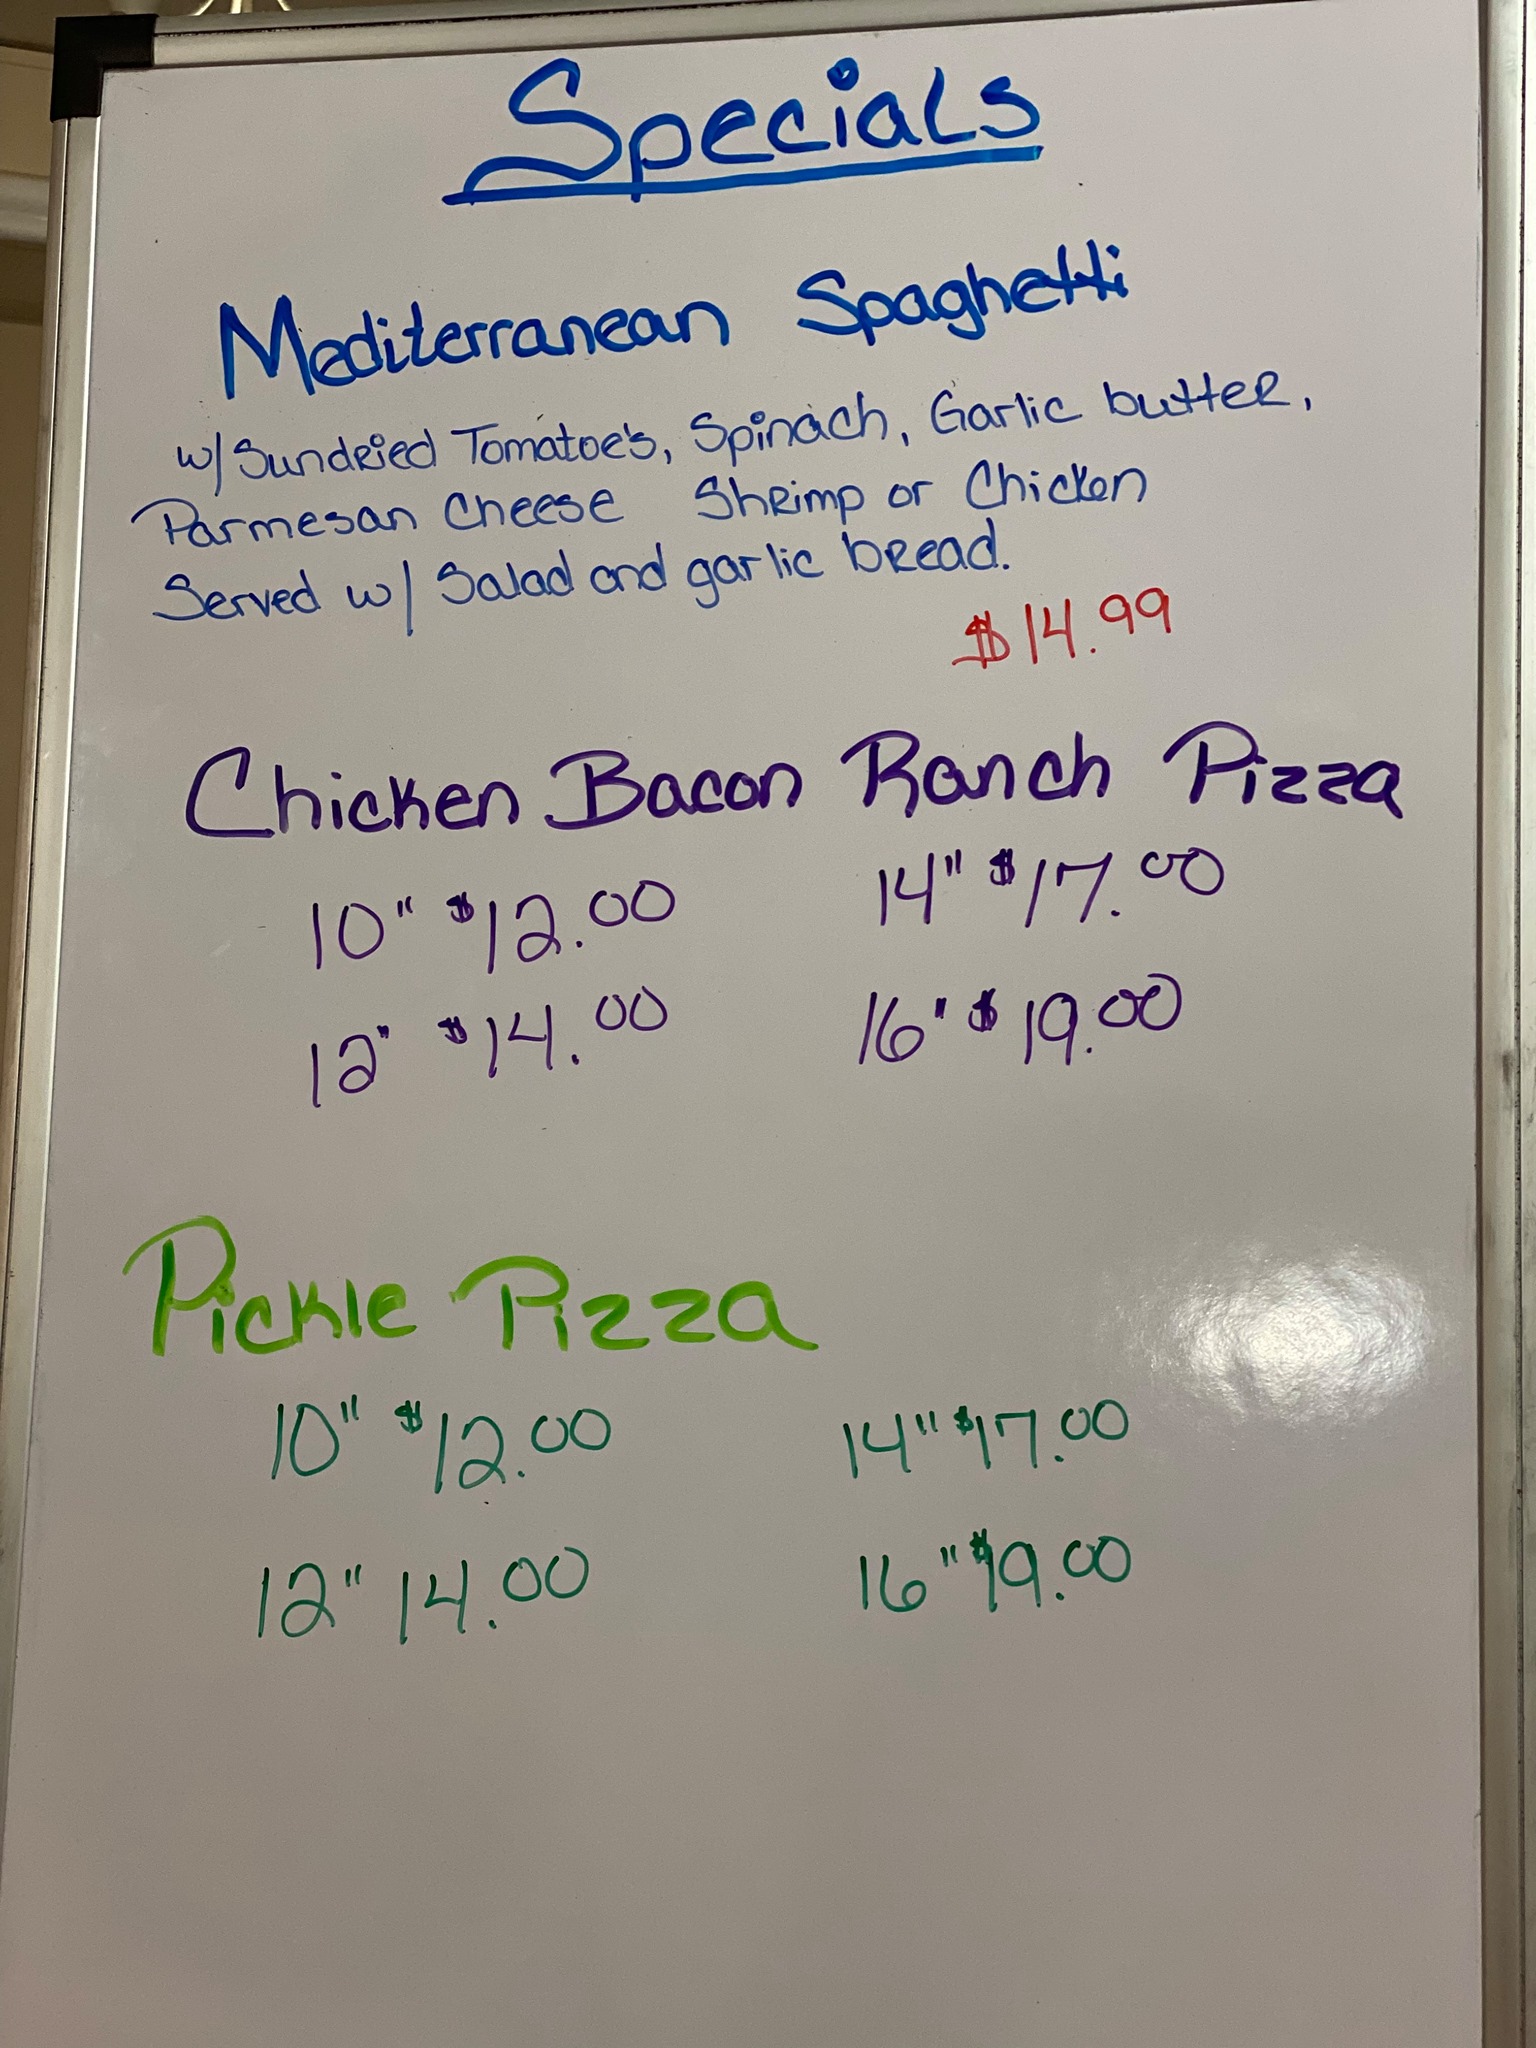 Specials
Mediterranean Spaghetti
w/ Sundried Tomatoe's, Spinach, Garlic butter,
Parmesan Cheese Shrimp or Chicken
Served w/ Salad and garlic bread.
$14.99
Chicken Bacon Ranch Pizza
10" $12.00 14" $17.00
12" $14.00 16" $19.00
Pickle Pizza
10" $12.00 14" $17.00
12" 14.00 16" $19.00